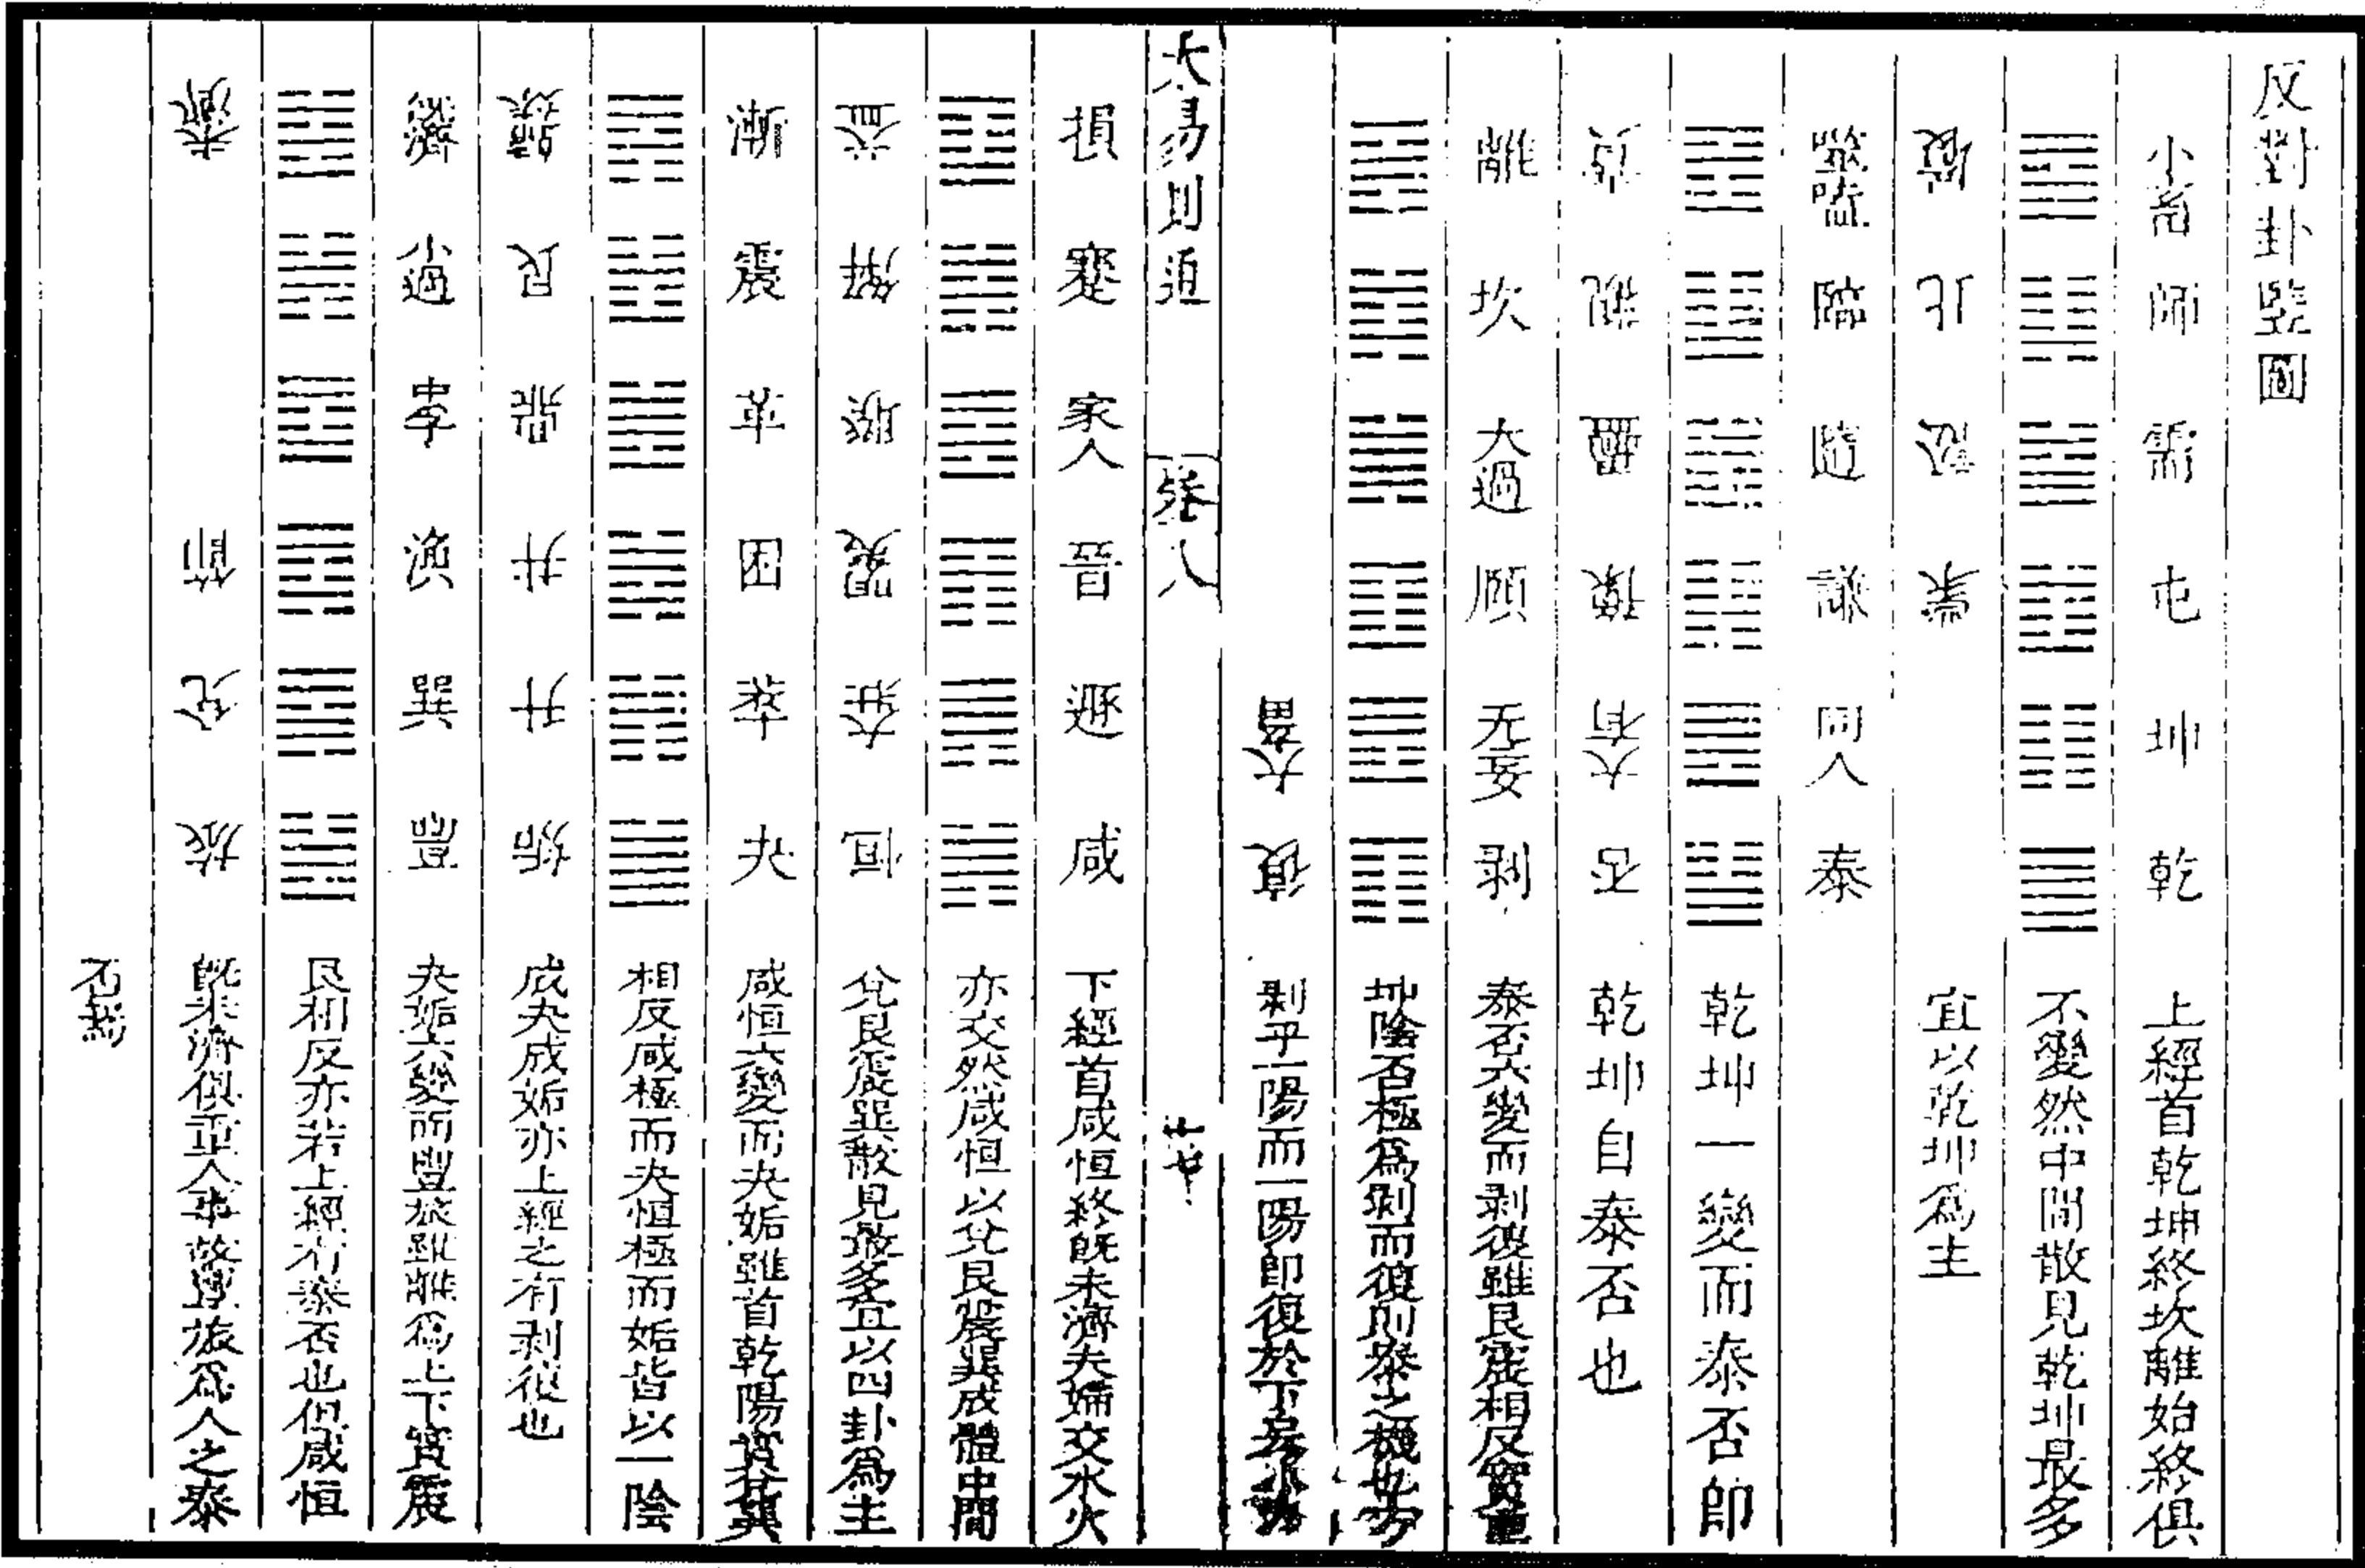 反對卦圖
小畜 師 需 屯 坤 乾 上經首乾坤終坎離始終俱
不變然中間散見乾坤最多
履 比 訟 蒙 宜以乾坤爲主
噬嗑 臨 隨 謙 同人 泰
乾坤一變而泰否即
賁 觀 蠱 豫 大有 否 乾坤自泰否也
離 坎 大過 頤 无妄 剥 泰否六變而剥復雖艮震相反實重
坤陰否極爲剥而復則泰之機也方
大畜 復 剥乎一陽而一陽即復於下
大易則通 卷八
損 蹇 家人 晉 遯 咸 下經首咸恒終旣未濟夫婦交水火
亦交然咸恒以兌艮震巽成體中間
益 解 睽 明夷 大壯 恒 兌艮震巽散見最多宜以四卦爲主
漸 震 革 困 萃 夬 咸恒六變而夬姤雖首乾陽實兌巽
相反咸極而夬恒極而姤皆以一陰
歸妹 艮 鼎 井 升 姤 成夬成姤亦上經之有剥復也
旣濟 小過 中孚 渙 巽 豐 夬姤六變而豐旅雖離爲上下實震
艮相反亦若上經有泰否也但咸恒
未濟 節 兌 旅 旣未濟俱重人事故豐旅爲人之泰
否